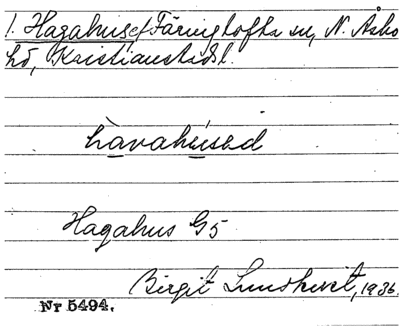 1. Hagahuset Färingtofta sn, N. Åsbo
hd, Kristianstads l.
hàvahúsəd
Hagahus G5
Birgit Lundkvist, 1936.
Nr 5494.